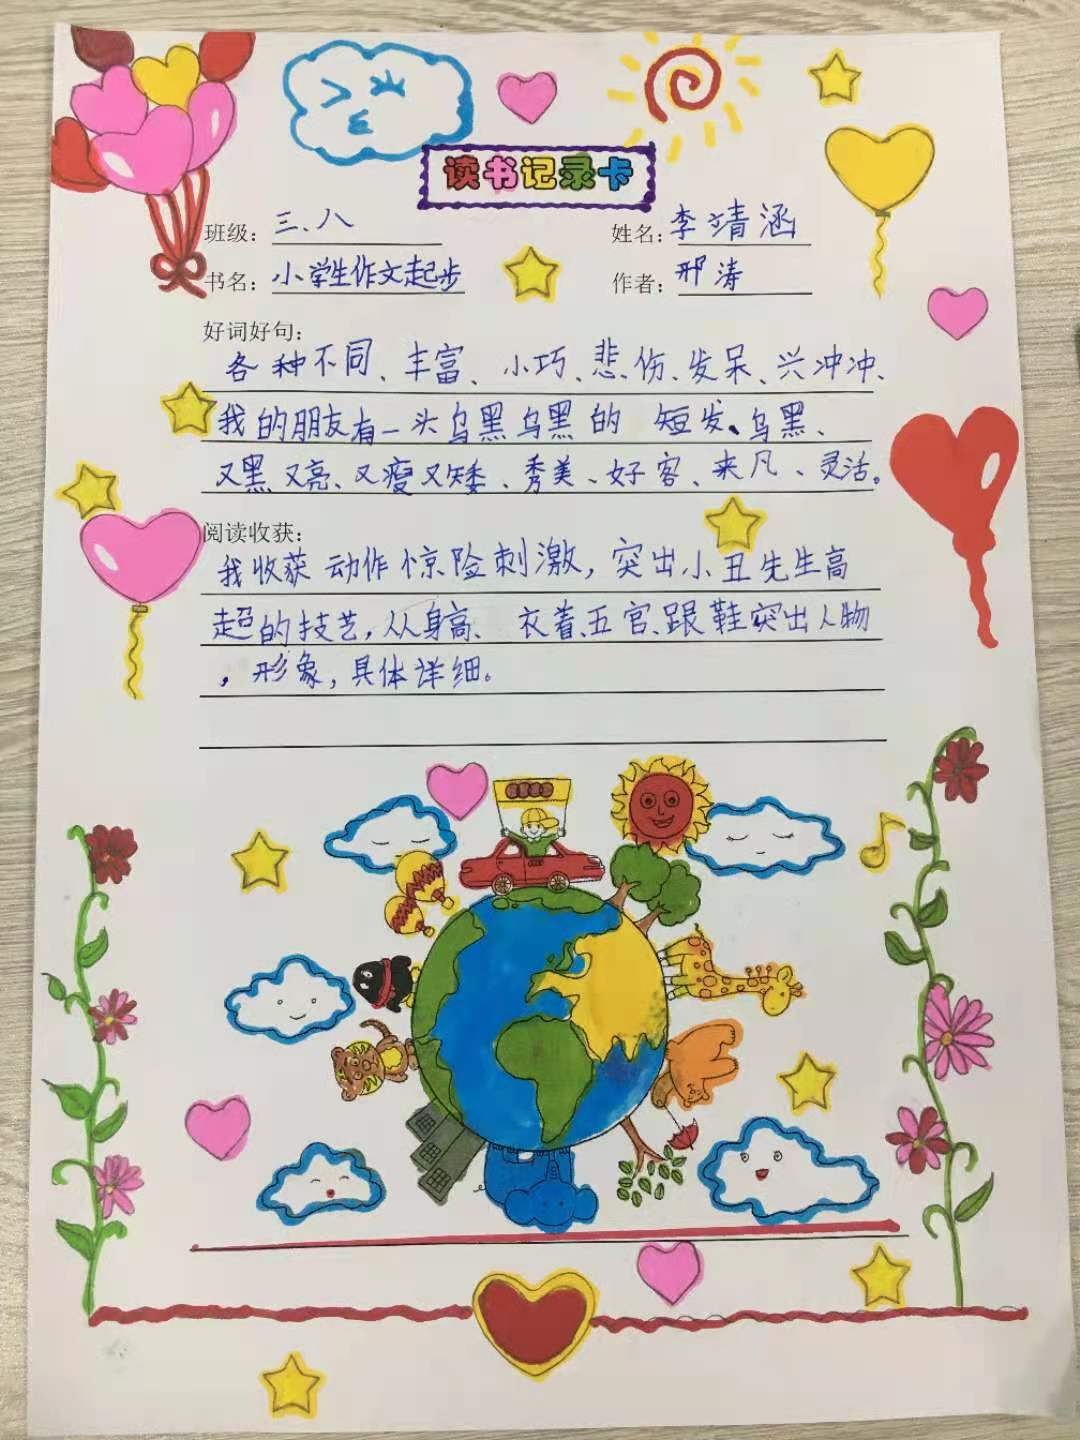 读书记录卡
班级：三、八 姓名：李靖涵
书名：小学生作文起步 作者：邢涛
好词好句：
各种不同、丰富、小巧、悲伤、发呆、兴冲冲、
我的朋友有一头乌黑乌黑的 短发、乌黑、
又黑又亮、又瘦又矮、秀美、好客、来凡、灵活。
阅读收获：
我收获动作惊险刺激，突出小丑先生高
超的技艺，从身高、衣着、五官、跟鞋突出人物
，形象，具体详细。